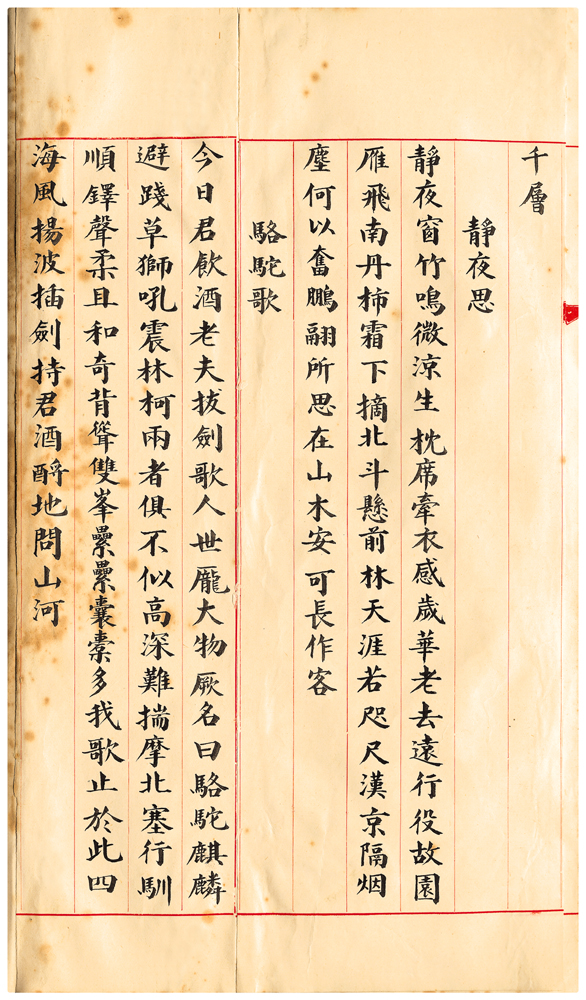 千層
靜夜思
靜夜窗竹鳴微涼生枕席牽衣感歲華老去遠行役故園
雁飛南丹柿霜下摘北斗懸前林天涯若咫尺漢京隔烟
塵何以奮鵬翮所思在山木安可長作客
駱駝歌
今日君飲酒老夫拔劍歌人世龐大物厥名曰駱駝麒麟
避踐草獅吼震林柯兩者俱不似高深難揣摩北塞行馴
順鐸聲柔且和奇背聳雙峯纍纍囊橐多我歌止於此四
海風揚波插劍持君酒酹地問山河